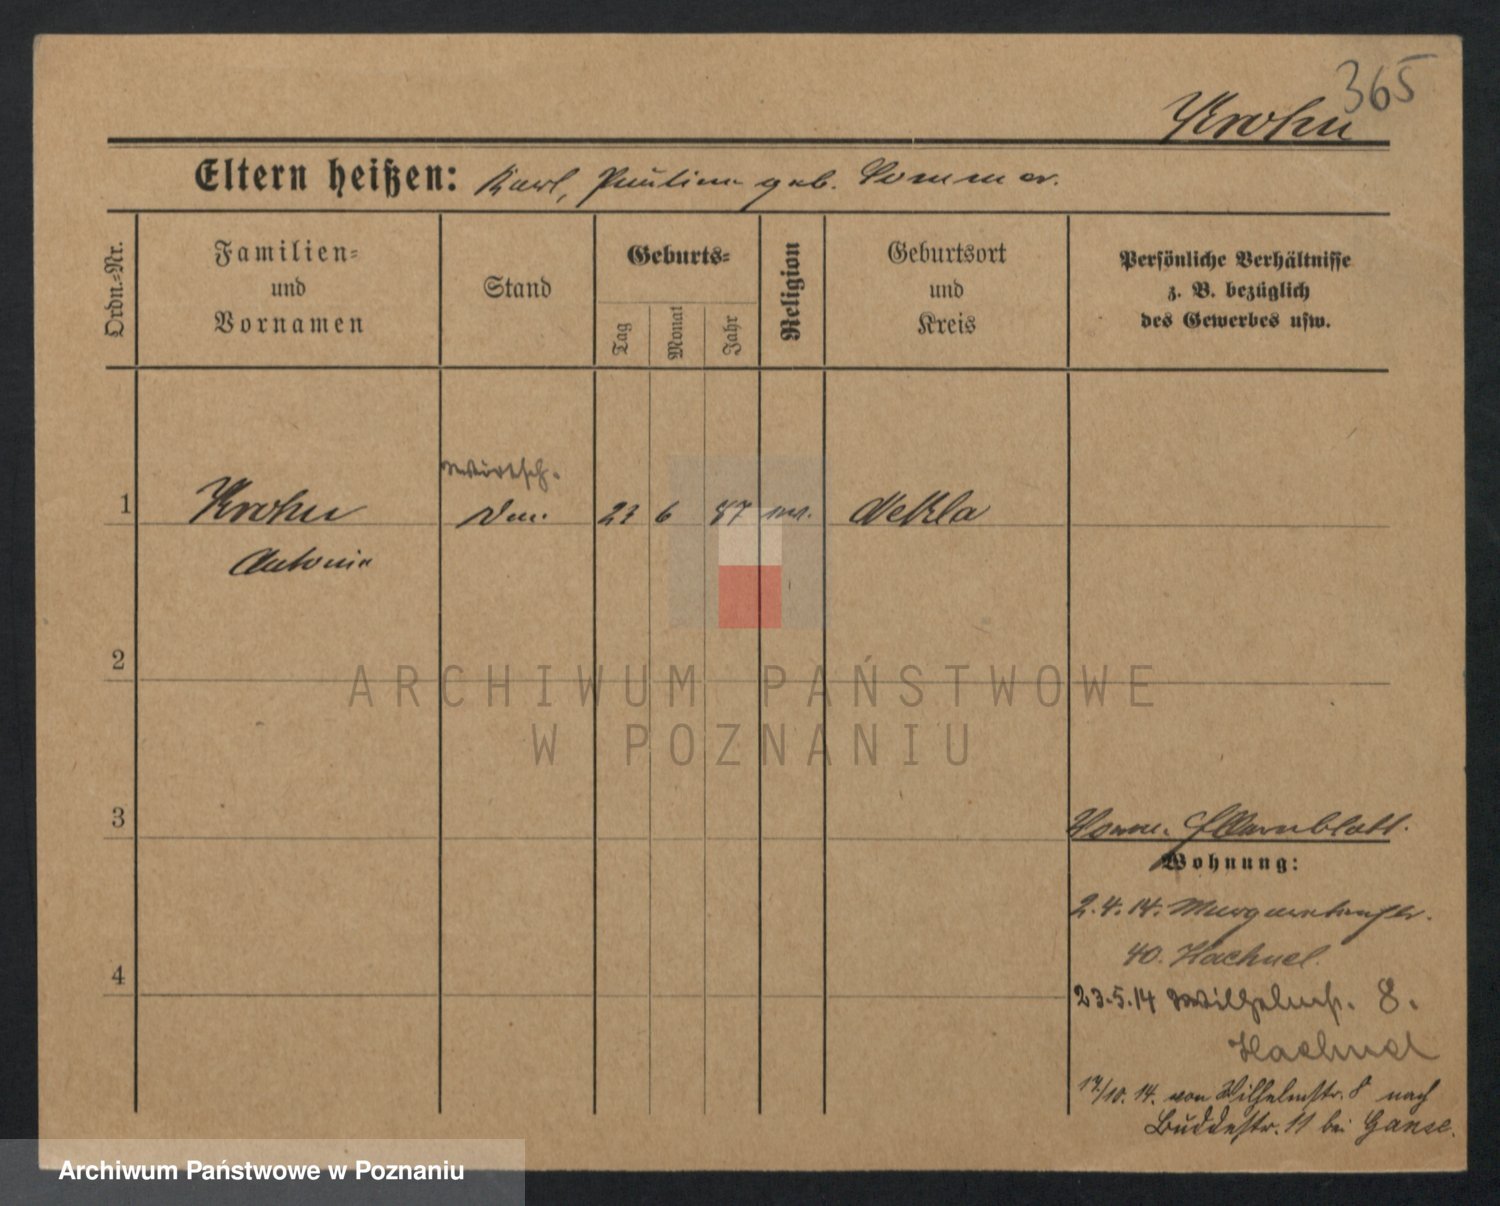 365
Krohn
Eltern heißen: Karl, Pauline geb. Sommer.
Ordn.-Nr.
Familien-
und
Vornamen
Stand
Geburts-
Tag
Monat
Jahr
Religion
Geburtsort
und
Kreis
Persönliche Verhältnisse
z. B. bezüglich
des Gewerbes usw.
Wirtsch.
1 Krohn 23 6 87 Nekla
Antonie
2
ARCHIWUM PAŃSTWOWE
W POZNANIU
3
Wohnung:
2.4.14.
40. Haehnel.
4
23.5.14 Wilhelmstr. 8.
Haehnel
17/10. 14. von Wilhelmstr. 8 nach
Buddestr. 11 bei Ganse.
Archiwum Państwowe w Poznaniu